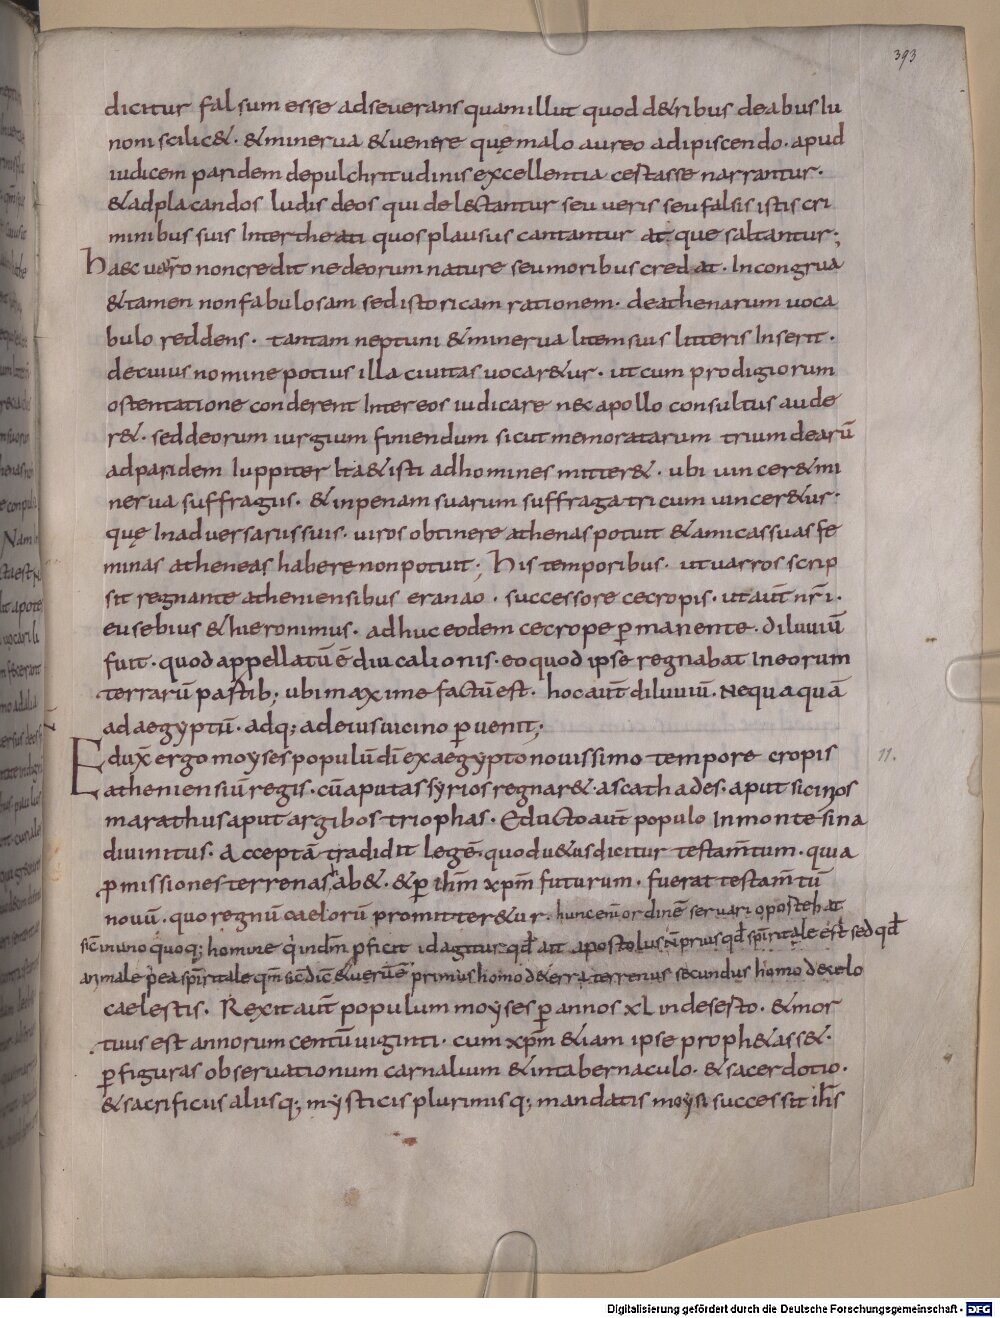 393
dicitur falsum esse adseuerans quam illut quod d&ribus deabus Iu
noni scilic&· &minerua &uenere quę malo aureo adipiscendo· apud
iudicem paridem depulchritudinis excellentia cestasse narrantur·
&adplacandos ludis deos qui delectantur seu ueris seu falsis istis cri
minibus suis Inter theati quos plausus cantantur atque saltantur;
haec uarro non credit nedeorum nature seu moribus credat· Incongrua
&tamen nonfabulosam sed istoricam rationem· deathenarum uoca
bulo reddens· tantam neptuni &minerua litem suis litteris Inserit·
decuius nomine potius illa ciuitas uocar&ur· ut cum prodigiorum
ostentatione conderent Inter eos iudicare nec apollo consultus aude
r&· sed deorum iurgium finiendum sicut memoratarum trium dearū
adparidem Iuppiter Ita &isti adhomines mitter&· ubi uincer& mi
nerua suffragiis· &inpenam suarum suffragatricum uincer&ur·
quę Inaduersariis suis· uiros obtinere athenas potuit &amicas suas fe
minas atheneas habere non potuit; his temporibus· ut uarros scrip
sit regnante atheniensibus eranao· successore cecropis· ut aut̄ nr̄i·
eusebius &hieronimus· adhuc eodem cecrope ꝑmanente· diluuiū
fuit· quod appellatū ē diucalionis· eo quod ipse regnabat Ineorum
terrarū partib; ubi maxime factū est· hoc aut̄ diluuiū· Nequaquā
ad aegyptū· adq; ad eius uicino ꝑuenit;
Edux̄ ergo moyses populū dī exaegypto nouissimo tempore cropis
atheniensiū regis· cū aput assyrios regnar& ascathades· aput sicinos
marathus aput argibos triophas· Educto aut̄ populo In monte sina
diuinitus· Acceptā tradidit legē· quod u&us dicitur testam̄tum· quia
ꝑmissiones terrenas ab&· &ꝑ ih̄m xp̄m futurum· fuerat testam̄tū
nouū· quo regnū caelorū promitter&ur· hunc enī ordinē seruari oportebat
sic̄ in uno quoq; homine q̇ in dn̄m ꝓficit id agitur qd̄ ait apostolus n̄ prius qd̄ sp̄iritale est sed qd̄
animale p̄ea sp̄iritale qm̄ sic̄ dic̄ &uerūē primus homo de terra terrenus secundus homo de celo
caelestis· Rexit aut̄ populum moyses ꝑ annos xl in deserto· &mor
tuus est annorum centū uiginti· cum xp̄m &iam ipse proph&ass&·
ꝑ figuras obseruationum carnalium &in tabernaculo· &sacerdotio·
&sacrificiis aliisq; mysticis plurimisq; mandatis moysi successit ih̄s
11.
Digitalisierung gefördert durch die Deutsche Forschungsgemeinschaft - DFG